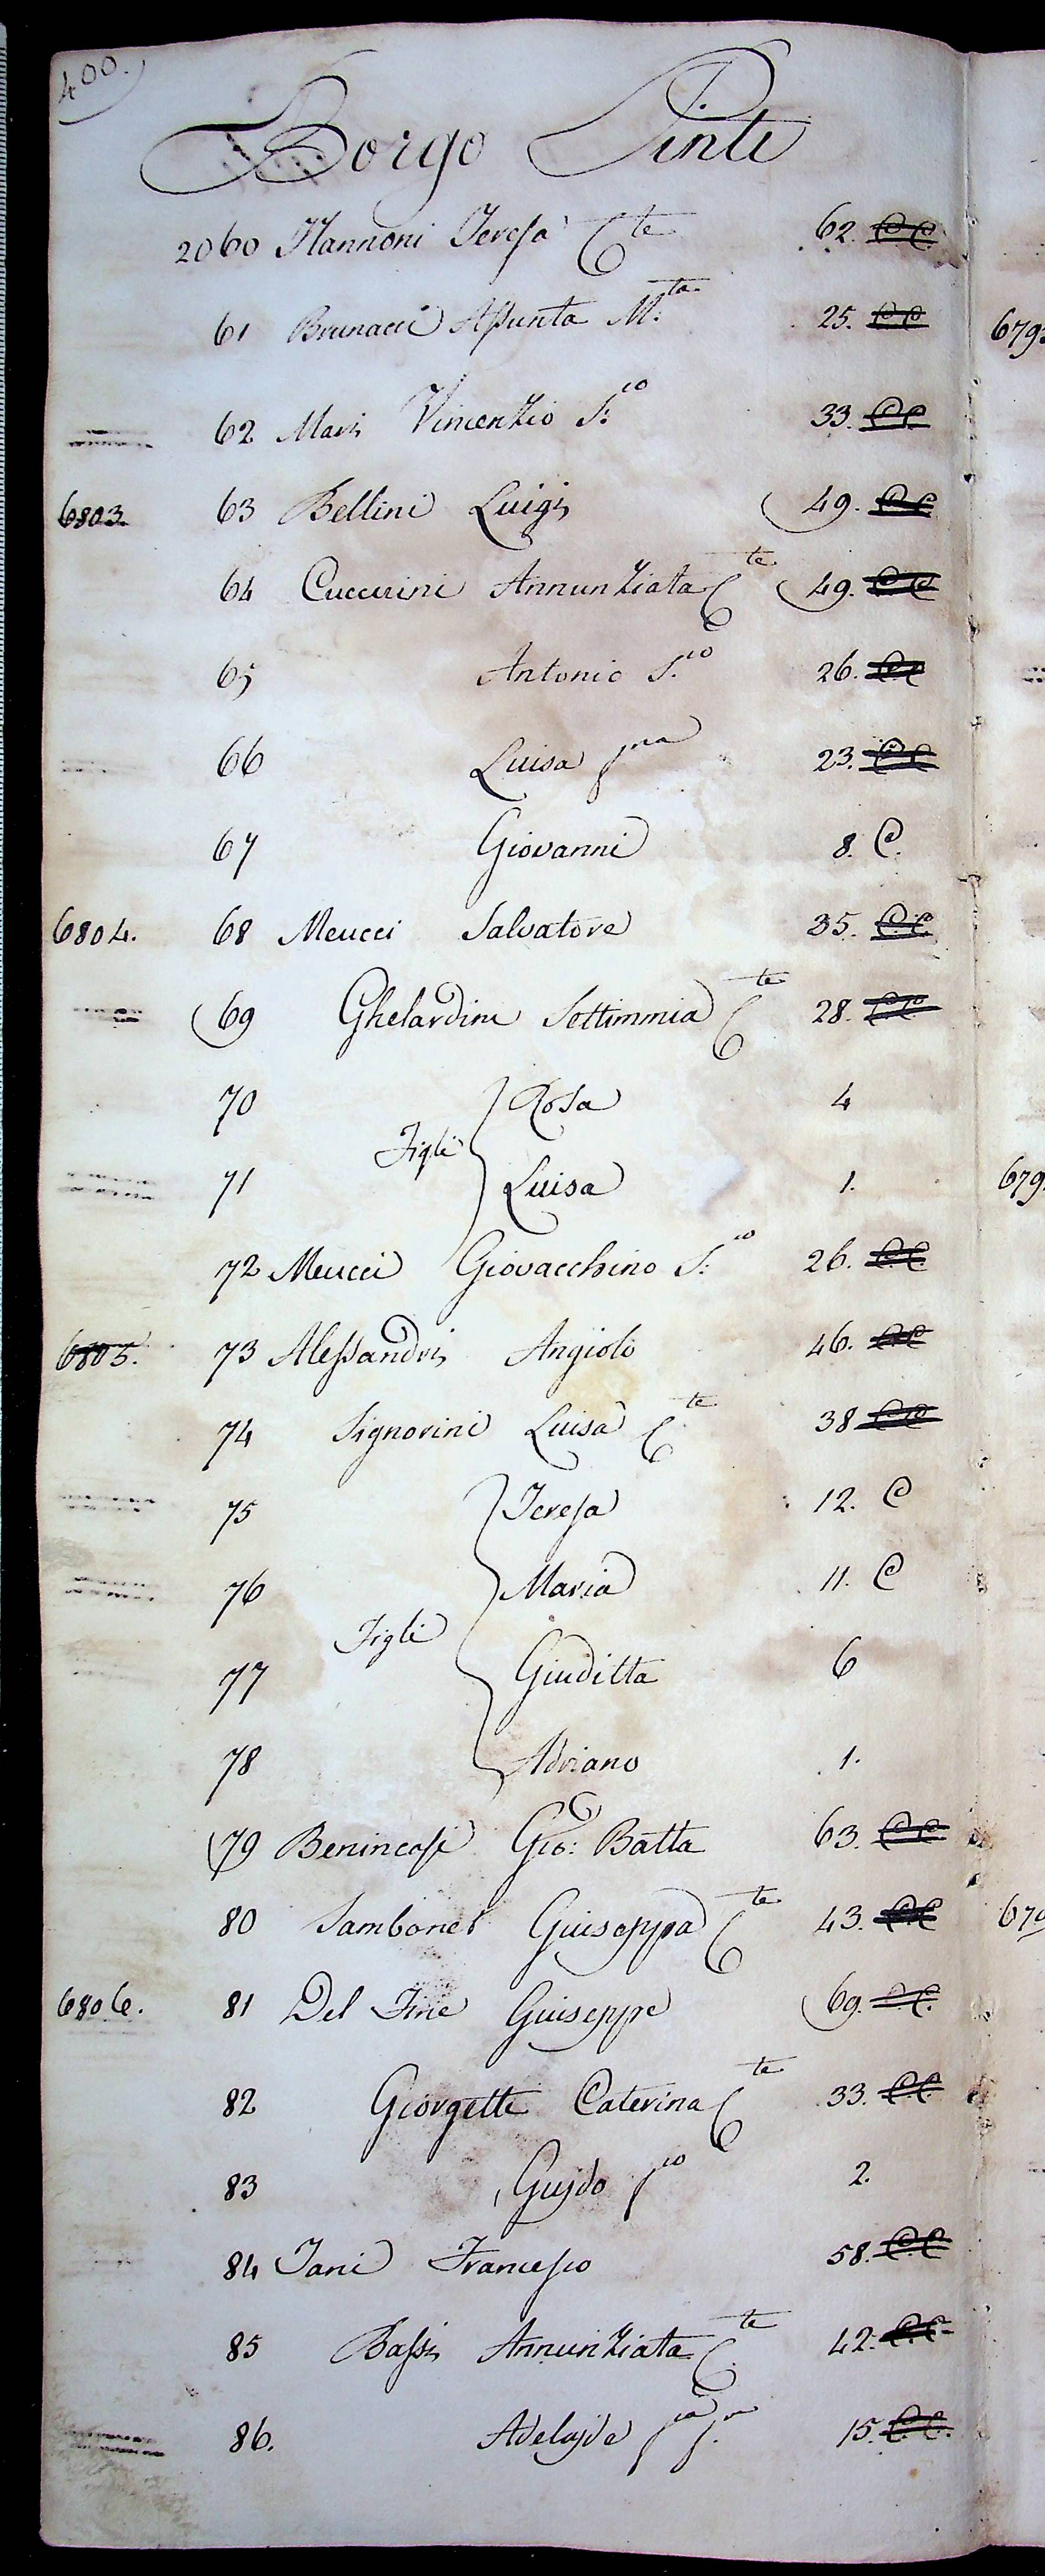 400.
Borgo Pinti
2060 Nannoni Teresa C.te 62. C C
61 Brunacci Assunta M:ta 25. C C
62 Mari Vincenzio S:co 33. C C
6803. 63 Bellini Luigi 49. C C
64 Cuccuini Annunziata C.te 49. C C
65 Antonio S.co 26. C C
66 Luisa f.na 23. C C
67 Giovanni 8. C.
6804. 68 Meucci Salvatore 35. C. C.
69 Ghelardini Settimmia C.te 28. C C
70 Rosa 4
Figli
71 Luisa 1.
72 Meucci Giovacchino S:co 26. C C
6805. 73 Alessandri Angiolo 46. C C
74 Signorini Luisa C.te 38 C C
75 Teresa 12. C
76 Maria 11. C
Figli
77 Giuditta 6
78 Adriano 1.
79 Benincasi Gio: Batta 63. C C
80 Sambonet Guiseppa C.te 43. C C
6806. 81 Del Fine Guiseppe 69. C C.
82 Giorgetti Caterina C.te 33. C C
83 Guido f.io 2.
84 Tani Francesco 58. C. C
85 Bassi Annunziata C.te 42. C. C.
86. Adelajde 15. C. C.